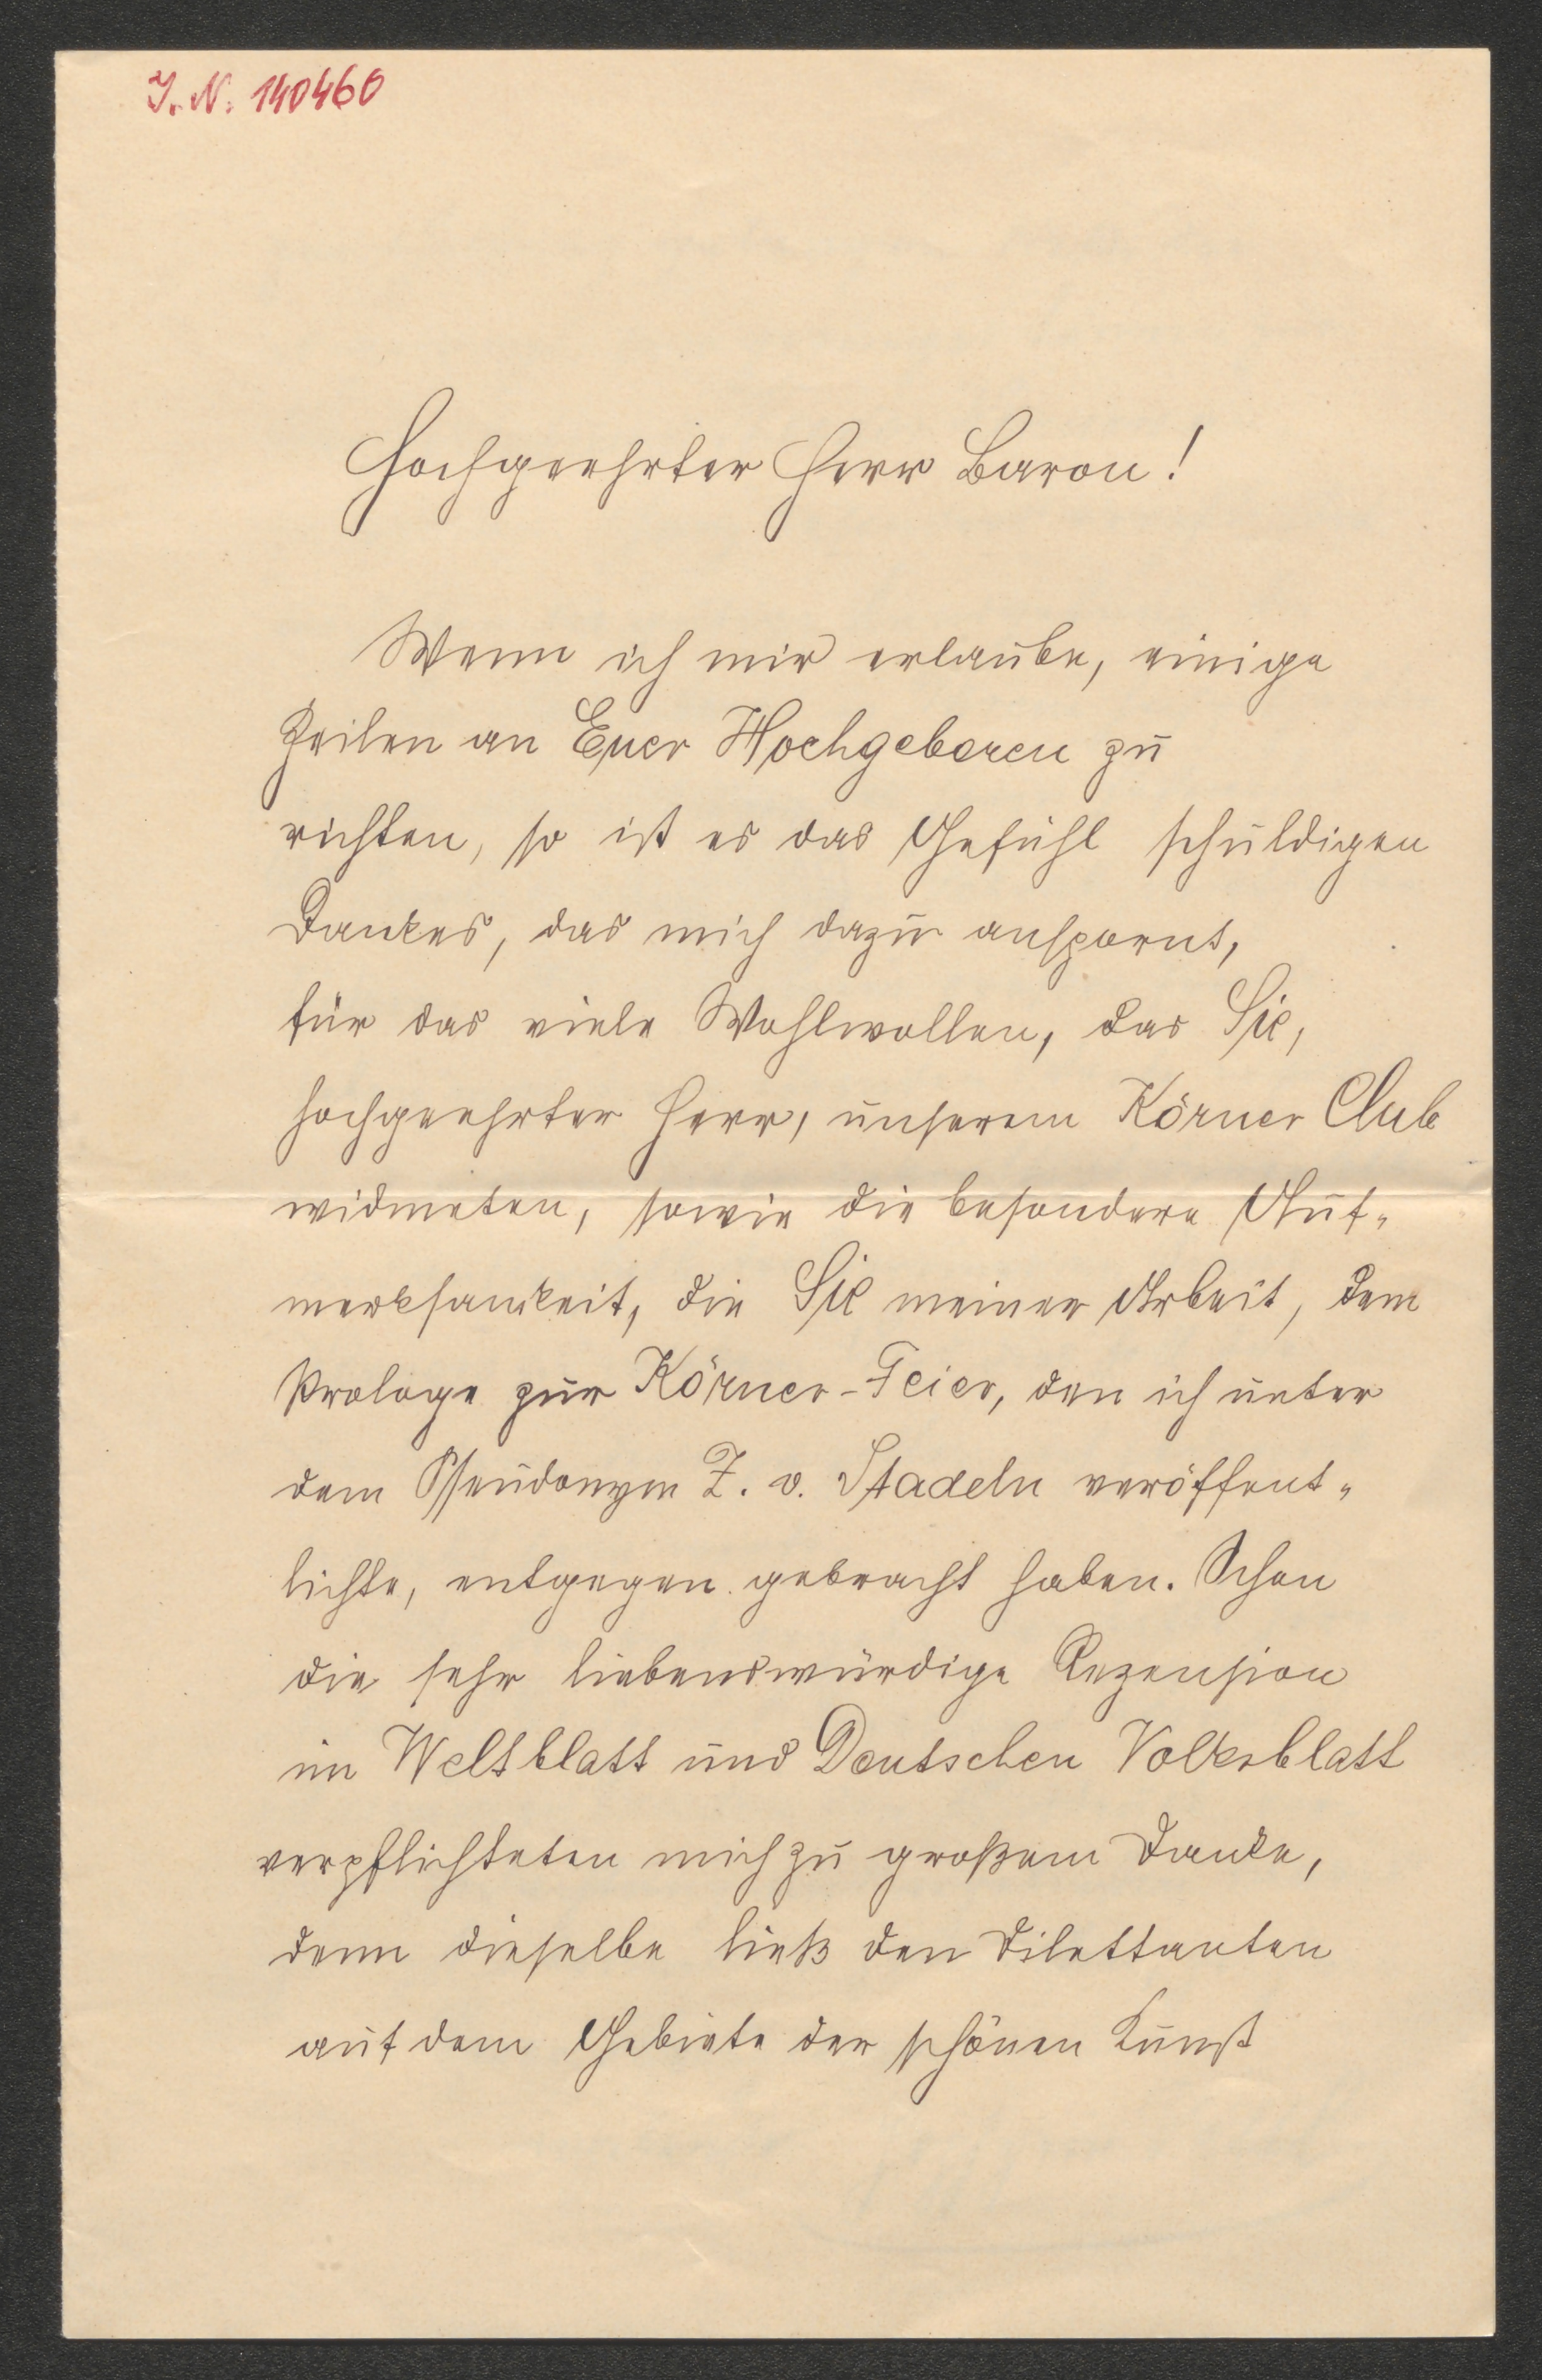 J. N. 140460
Hochgeehrter Herr Baron!
Wenn ich mir erlaube, einige
Zeilen an Euer Hochgeboren zu
richten, so ist es das Gefühl schuldigen
Dankes, das mich dazu anspornt,
für das viele Wohlwollen, das Sie,
hochgeehrter Herr, unserem Körner Club
widmeten, sowie die besondere Auf-
merksamkeit, die Sie meiner Arbeit, dem
Prologe zur Körner-Feier, den ich unter
dem Pseudonym Z. v. Stadeln veröffent-
lichte, entgegen gebracht haben. Schon
die sehr liebenswürdige Rezension
im Weltblatt und Deutschen Volksblatt
verpflichteten mich zu großem Danke,
denn dieselbe ließ den Dilettanten
auf dem Gebiete der schönen Kunst